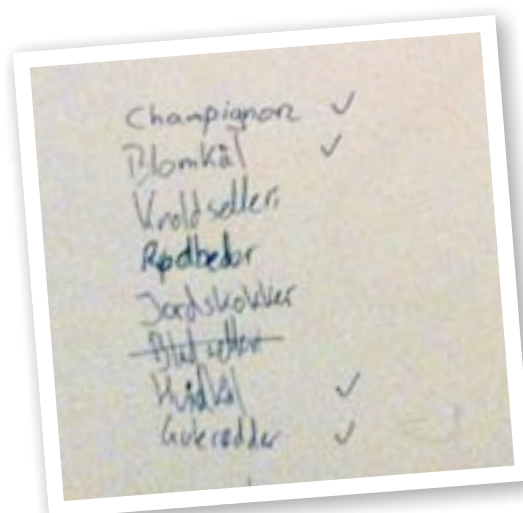 Champignon ✓
Blomkål ✓
Knoldselleri
Rødbeder
Jordskokker
Bladselleri
Hvidkål ✓
Gulerødder ✓